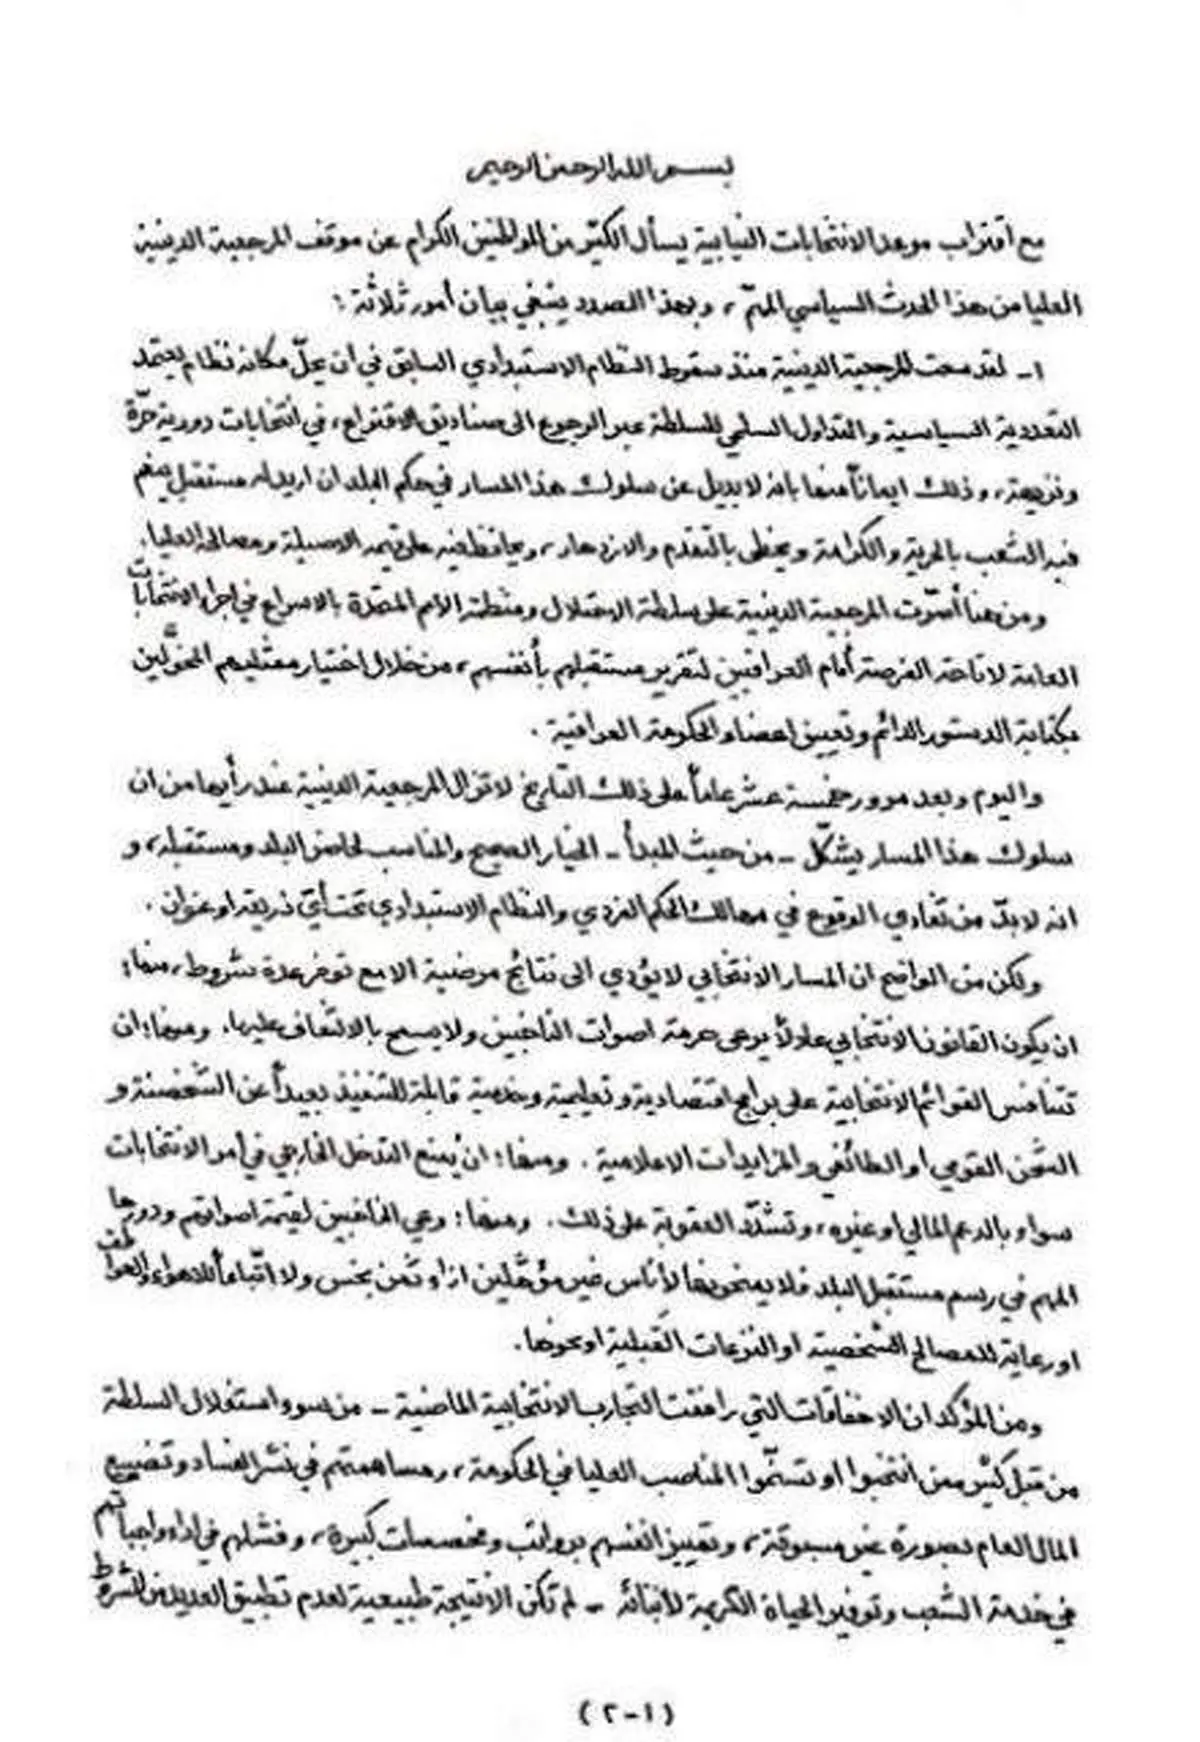 بسم الله الرحمن الرحيم
مع اقتراب موعد الانتخابات النيابية يسأل الكثير من المواطنين الكرام عن موقف المرجعية الدينية
العليا من هذا الحدث السياسي المهمّ، وبهذا الصدد ينبغي بيان أمور ثلاثة :
١ـ لقد سعت المرجعية الدينية منذ سقوط النظام الاستبدادي السابق في ان يحلّ مكانه نظام يعتمد
التعددية السياسية والتداول السلمي للسلطة عبر الرجوع الى صناديق الاقتراع، في انتخابات دورية حرّة
ونزيهة، وذلك ايماناً منها بانه لا بديل عن سلوك هذا المسار في حكم البلد ان اريد له مستقبل ينعم
فيه الشعب بالحرية والكرامة ويحظى بالتقدم والازدهار، ويحافظ فيه على قيمه الاصيلة ومصالحه العليا.
ومن هنا أصرّت المرجعية الدينية على سلطة الاحتلال ومنظمة الامم المتحدة بالاسراع في اجراء الانتخابات
العامة لاتاحة الفرصة أمام العراقيين لتقرير مستقبلهم بأنفسهم، من خلال اختيار ممثليهم المخوَّلين
بكتابة الدستور الدائم وتعيين اعضاء الحكومة العراقية .
واليوم وبعد مرور خمسة عشر عاماً على ذلك التاريخ لا تزال المرجعية الدينية عند رأيها من ان
سلوك هذا المسار يشكّل ـ من حيث المبدأ ـ الخيار الصحيح والمناسب لحاضر البلد ومستقبله، و
انه لا بدّ من تفادي الوقوع في مهالك الحكم الفردي والنظام الاستبدادي تحت أيّ ذريعة او عنوان .
ولكن من الواضح ان المسار الانتخابي لا يؤدي الى نتائج مرضية الا مع توفر عدة شروط، منها:
ان يكون القانون الانتخابي عادلاً يرعى حرمة اصوات الناخبين ولا يسمح بالالتفاف عليها. ومنها: ان
تتنافس القوائم الانتخابية على برامج اقتصادية وتعليمية وخدمية قابلة للتنفيذ بعيداً عن الشخصنة و
الشحن القومي او الطائفي والمزايدات الاعلامية . ومنها: ان يُمنع التدخل الخارجي في أمر الانتخابات
سواء بالدعم المالي او غيره، وتشدّد العقوبة على ذلك. ومنها: وعي الناخبين لقيمة اصواتهم ودورها
المهم في رسم مستقبل البلد فلا يمنحونها لأناس غير مؤهّلين ازاء ثمن بخس ولا اتّباعاً للاهواء والعواطف
او رعاية للمصالح الشخصية او النزعات القَبلية او نحوها.
ومن المؤكد ان الاخفاقات التي رافقت التجارب الانتخابية الماضية ـ من سوء استغلال السلطة
من قبل كثير ممن انتخبوا او تسنّموا المناصب العليا في الحكومة، ومساهمتهم في نشر الفساد وتضييع
المال العام بصورة غير مسبوقة، وتمييز انفسهم برواتب ومخصصات كبيرة، وفشلهم في اداء واجباتهم
في خدمة الشعب وتوفير الحياة الكريمة لأبنائه ـ لم تكن الا نتيجة طبيعية لعدم تطبيق العديد من الشروط
(١-٢)